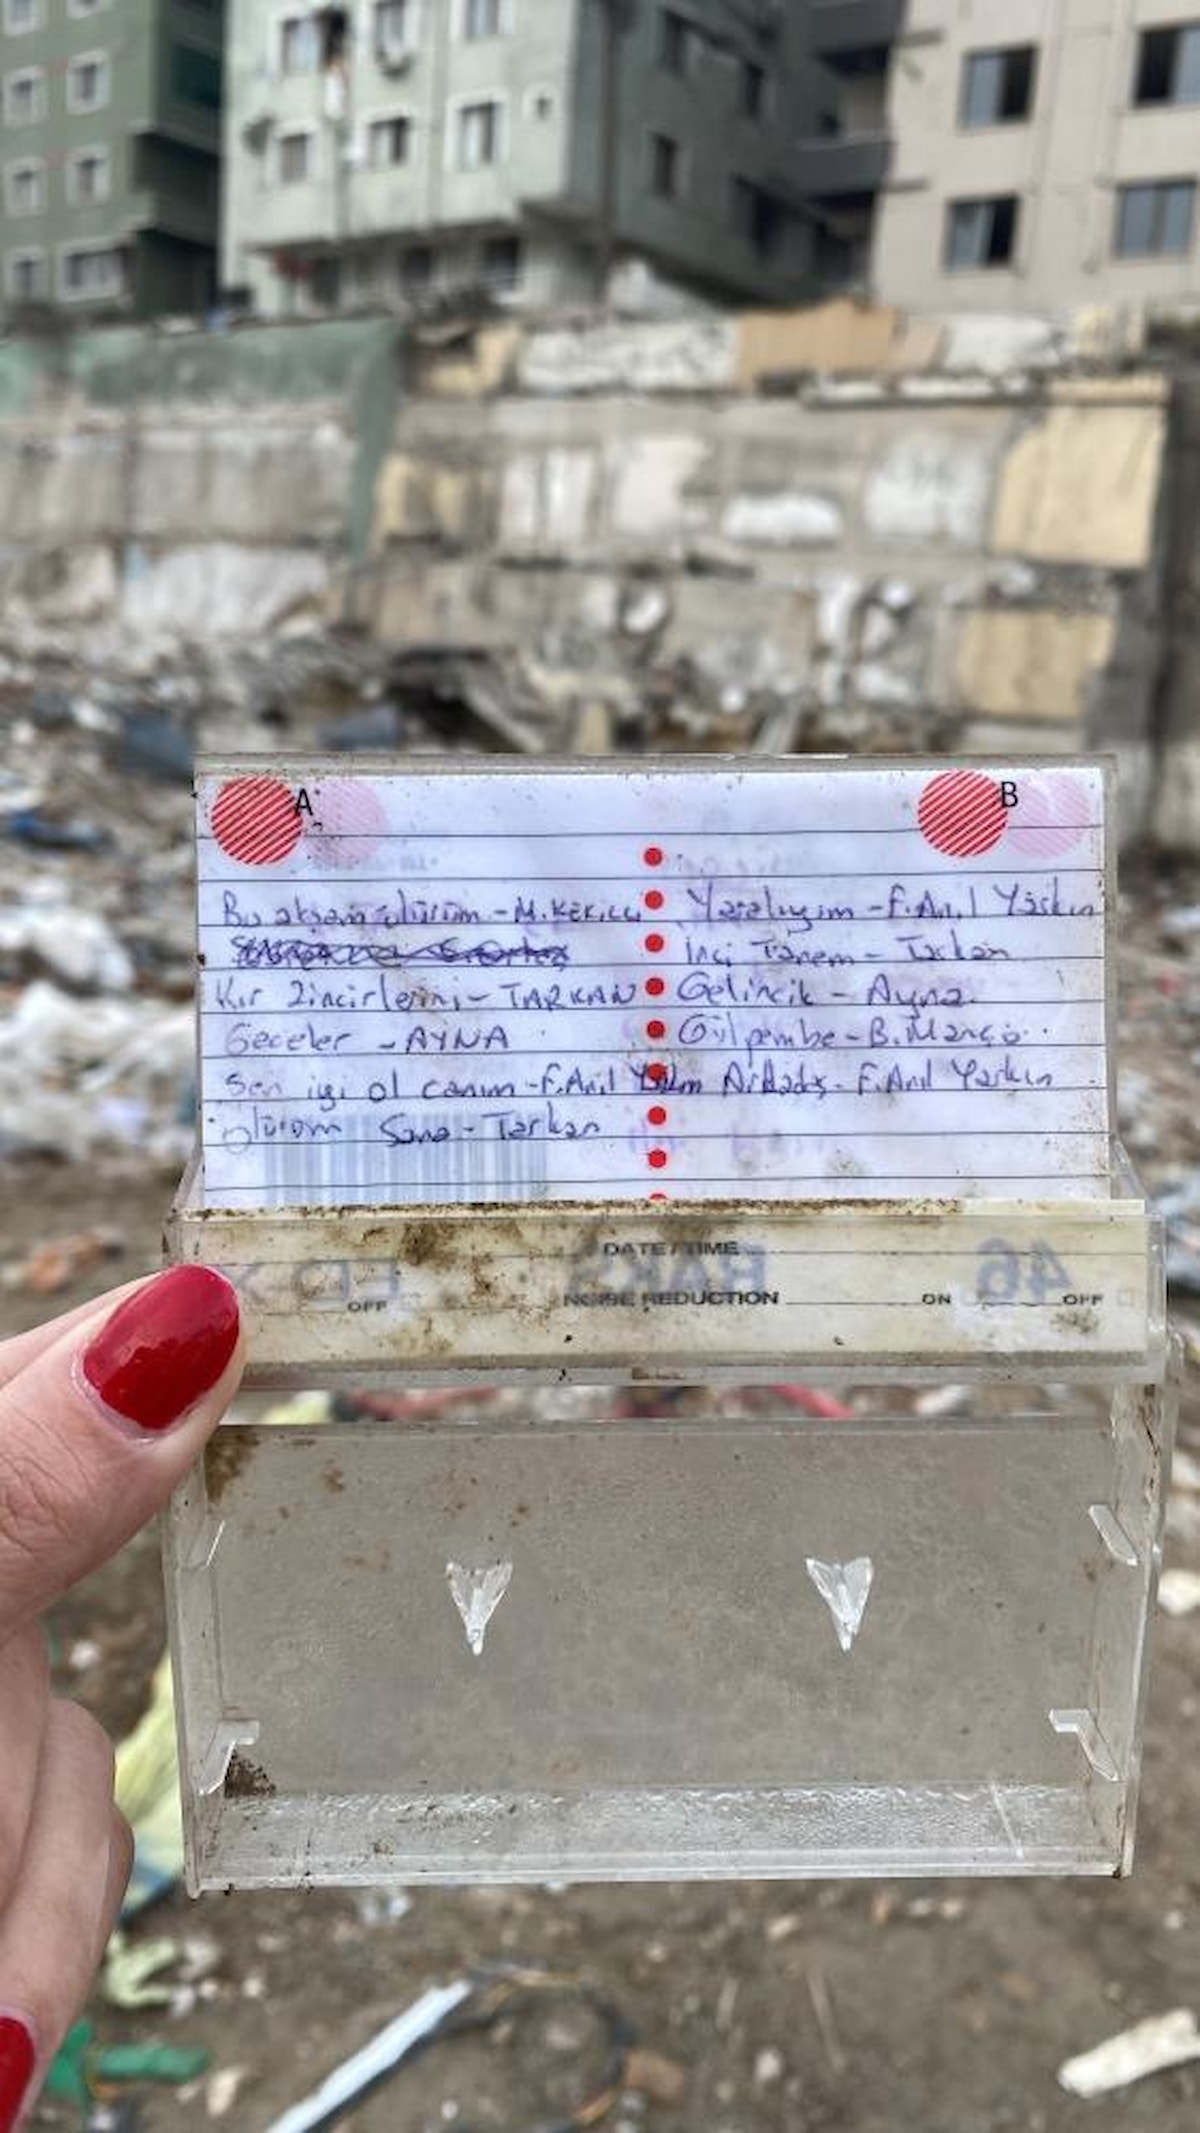 A
Bu akşam ölürüm - M.KEKİLLİ
Kır Zincirlerini - TARKAN
Geceler - AYNA
Sen iyi ol canım - F.Anıl
ölürüm Sana - Tarkan
B
Yaralıyım - F.Anıl Yaşkın
İnci Tanem - Tarkan
Gelincik - Ayna
Gülpembe - B.Manço
Arkadaş - F.Anıl Yarkın
DATE / TIME
OFF
NOISE REDUCTION ON OFF
RAKS
46